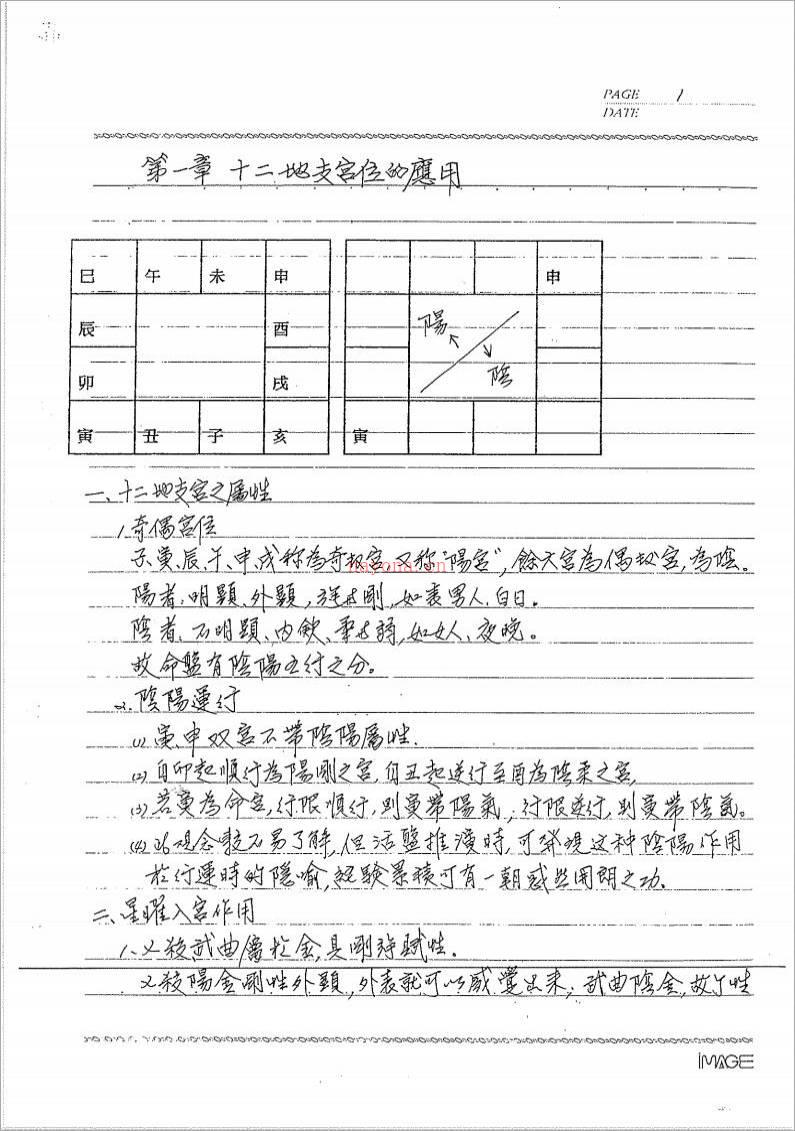 PAGE 1
DATE
第一章 十二地支宮位的應用
巳 午 未 申 申
辰 酉 陽
卯 戌 陰
寅 丑 子 亥 寅
一、十二地支宮之屬性
1.奇偶宮位
子、寅、辰、午、申、戌称為奇数宮又称"陽宮",餘六宮為偶数宮,為陰。
陽者,明顯、外顯,剛,如表男人、白日。
陰者,不明顯、內斂、弱,如女人、夜晚。
故命盤有陰陽五行之分。
2.陰陽運行
(1)寅、申双宮不帶陰陽屬性.
(2)自卯起順行為陽剛之宮,自丑起逆行至酉為陰柔之宮,
(3)若寅為命宮,行限順行,則寅帶陽氣;行限逆行,則寅帶陰氣。
(4)此观念較不易了解,但活盤推演時,可發現这种陰陽作用
於行運時的隱喻,经験累積可有一朝感其開朗之功.
二、星曜入宮作用
1.七殺武曲屬於金,具剛特性.
七殺陽金剛性外顯,外表就可以感覺出來;武曲陰金,故个性
nayona.cn
IMAGE